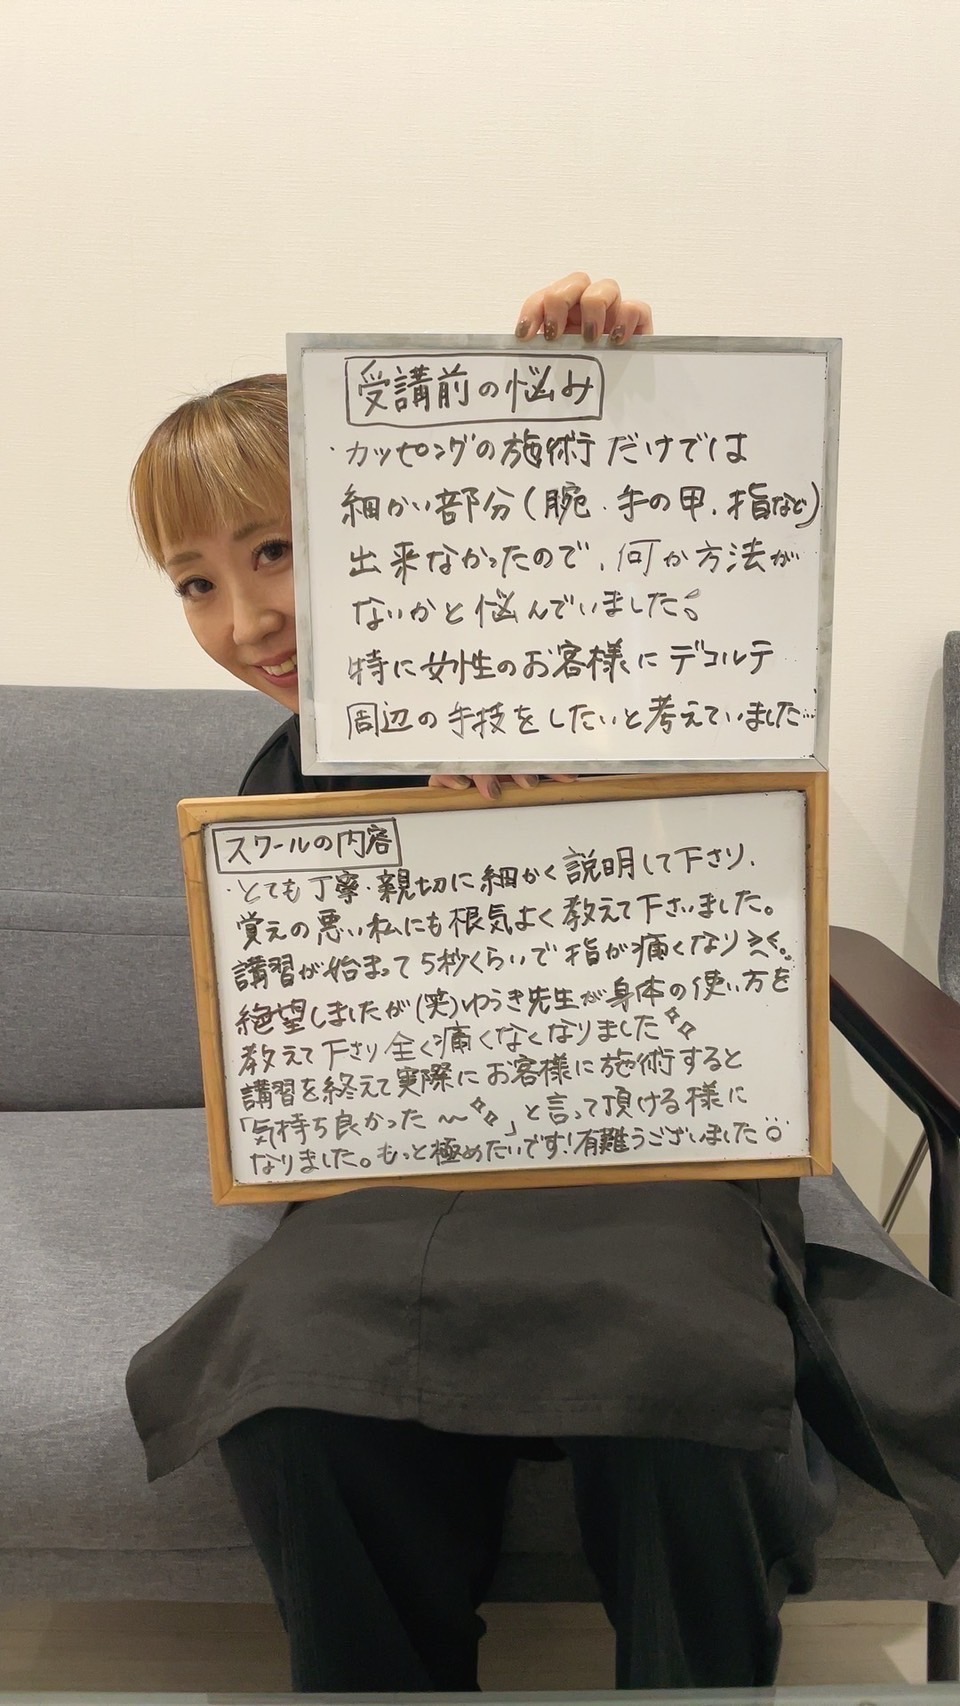 受講前の悩み
・カッピングの施術だけでは
細かい部分(腕・手の甲・指など)
出来なかったので、何か方法が
ないかと悩んでいました。
特に女性のお客様にデコルテ
周辺の手技をしたいと考えていました…
スクールの内容
・とても丁寧・親切に細かく説明して下さり、
覚えの悪い私にも根気よく教えて下さいました。
講習が始まって5秒くらいで指が痛くなり
絶望しましたが(笑)ゆうき先生が身体の使い方を
教えて下さり全く痛くなくなりました
講習を終えて実際にお客様に施術すると
「気持ち良かった〜」と言って頂ける様に
なりました。もっと極めたいです!有難うございました